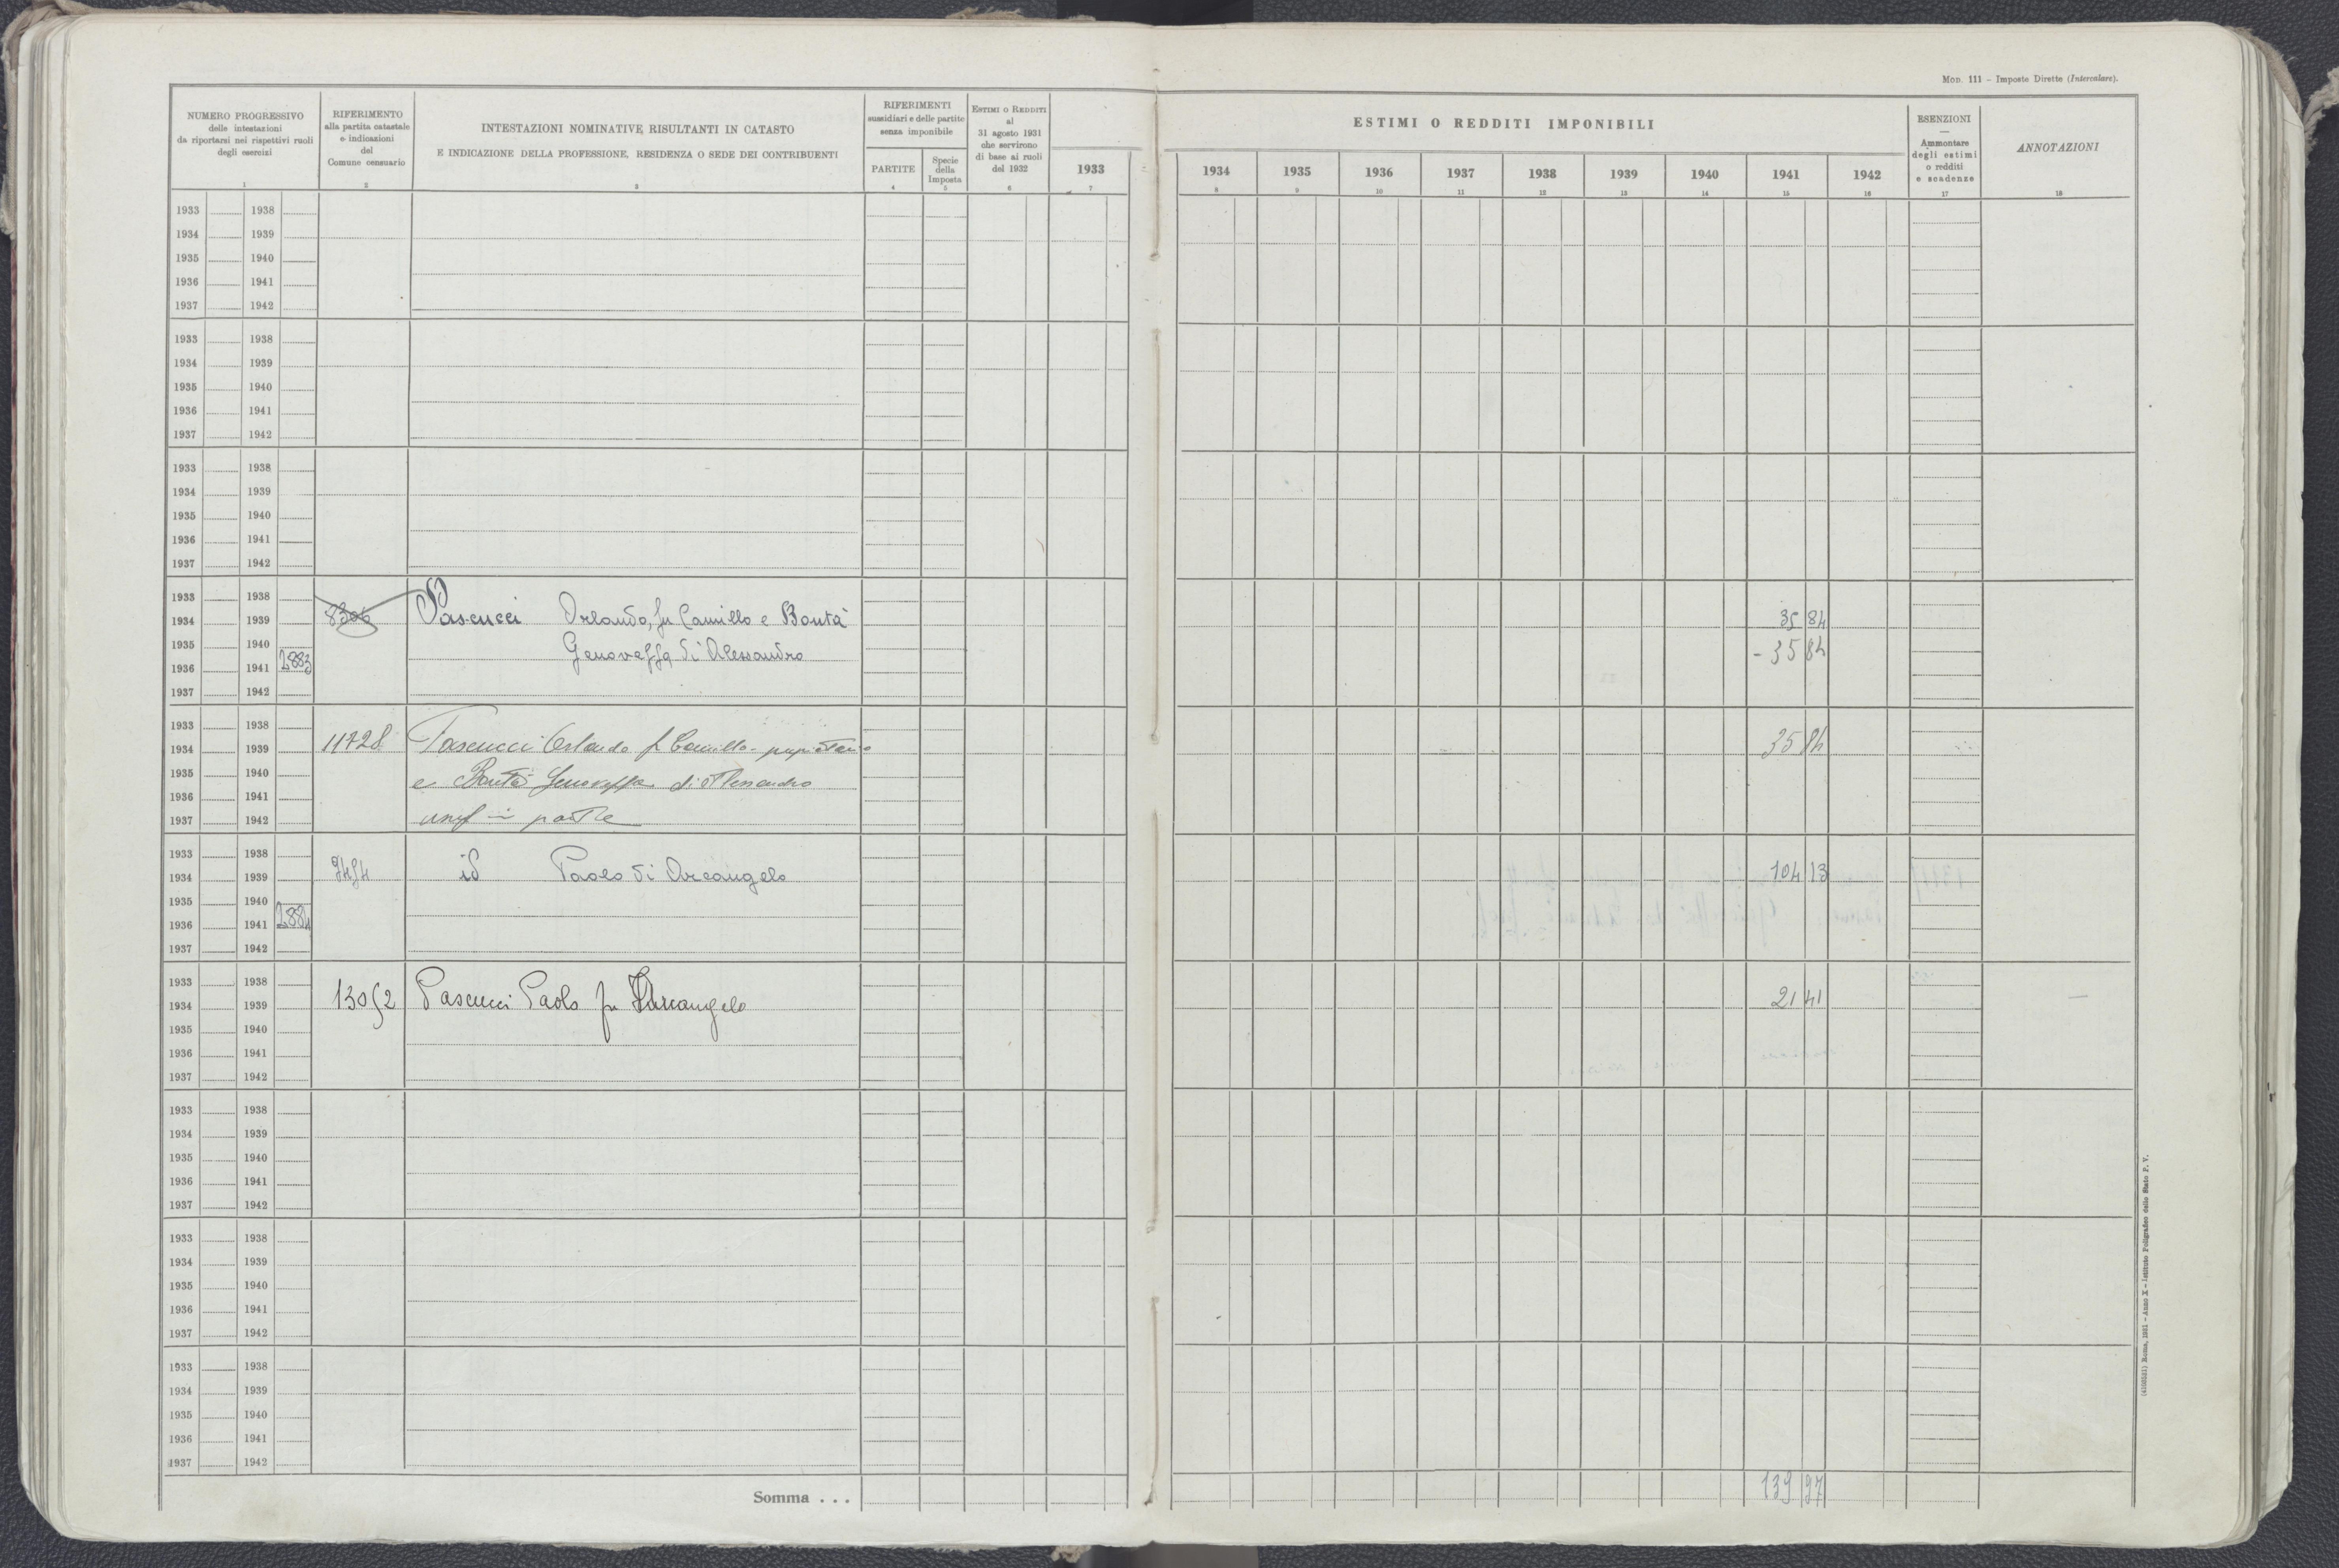 MOD. 111 – Imposte Dirette (Intercalare).
NUMERO PROGRESSIVO
delle intestazioni
da riportarsi nei rispettivi ruoli
degli esercizi
1
RIFERIMENTO
alla partita catastale
e indicazioni
del
Comune censuario
2
INTESTAZIONI NOMINATIVE RISULTANTI IN CATASTO
E INDICAZIONE DELLA PROFESSIONE, RESIDENZA O SEDE DEI CONTRIBUENTI
3
RIFERIMENTI
sussidiari e delle partite
senza imponibile
PARTITE
4
Specie
della
Imposta
5
ESTIMI O REDDITI
al
31 agosto 1931
che servirono
di base ai ruoli
del 1932
6
1933
7
ESTIMI O REDDITI IMPONIBILI
1934 1935 1936 1937 1938 1939 1940 1941 1942
8 9 10 11 12 13 14 15 16
ESENZIONI
—
Ammontare
degli estimi
o redditi
e scadenze
17
ANNOTAZIONI
18
1933 1938
1934 1939
1935 1940
1936 1941
1937 1942
1933 1938
1934 1939
1935 1940
1936 1941
1937 1942
1933 1938
1934 1939
1935 1940
1936 1941
1937 1942
1933 1938
1934 1939 8306 Pascucci Orlando, fu Camillo e Bontà 35 84
1935 1940 Genoveffa di Alessandro - 35 84
1936 1941 2883
1937 1942
1933 1938
1934 1939 11728 Pascucci Orlando f Camillo - proprietario 35 84
1935 1940 e Bontà Genoveffa di Alessandro
1936 1941
1937 1942 usuf in parte
1933 1938
1934 1939 id Paolo di Arcangelo 104 13
1935 1940
1936 1941 2884
1937 1942
1933 1938
1934 1939 13052 Pascucci Paolo fu Arcangelo 21 41
1935 1940
1936 1941
1937 1942
1933 1938
1934 1939
1935 1940
1936 1941
1937 1942
1933 1938
1934 1939
1935 1940
1936 1941
1937 1942
1933 1938
1934 1939
1935 1940
1936 1941
1937 1942
Somma . . . 139 97
(4100531) Roma, 1931 – Anno X – Istituto Poligrafico dello Stato P. V.